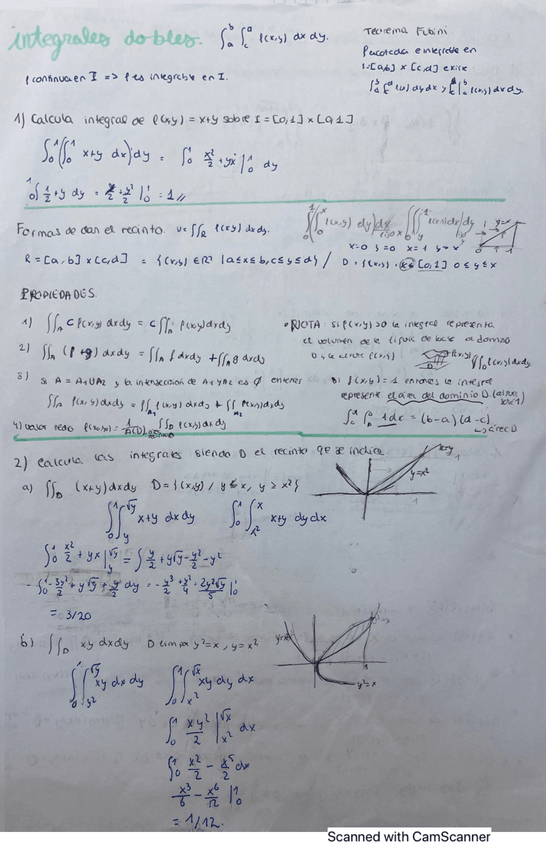 integrales dobles. ∫_a^b ∫_c^d f(x,y) dx dy.
Teorema Fubini
f acotada e integrable en
I=[a,b] x [c,d] existe
f continua en I => f es integrable en I.
1) Calcula integral de f(x,y) = x+y sobre I = [0,1] x [0,1]
∫_0^1 (∫_0^1 x+y dx) dy = ∫_0^1 x²/2 + yx |_0^1 dy
∫_0^1 1/2 + y dy = y/2 + y²/2 |_0^1 = 1 //
Formas de dar el recinto. V = ∫∫_R f(x,y) dx dy.
x=0 y=0 x=1 y=x
R = [a,b] x [c,d] = {(x,y) ∈ R² | a≤x≤b, c≤y≤d} / D = {(x,y), x ∈ [0,1] 0≤y≤x
PROPIEDADES
1) ∫∫_A c f(x,y) dx dy = c ∫∫_A f(x,y) dx dy
2) ∫∫_A (f+g) dx dy = ∫∫_A f dx dy + ∫∫_A g dx dy
3) si A = A1 U A2 y la intersección de A1 y A2 es ∅ entonces
∫∫_A f(x,y) dx dy = ∫∫_A1 f(x,y) dx dy + ∫∫_A2 f(x,y) dx dy
4) valor medio f(x0,y0) = 1/A(D) ∫∫_D f(x,y) dx dy
• NOTA: si f(x,y) >0 la integral representa
el volumen de la figura de base el dominio
D y la altura f(x,y)
f(x,y)
∫∫_D f(x,y) dx dy
si f(x,y) = 1 entonces la integral
represent el área del dominio D
∫_c^d ∫_a^b 1 dx = (b-a) (d-c)
↳ área D
2) Calcula las integrales siendo D el recinto que se indica
a) ∫∫_D (x+y) dx dy D = {(x,y) / y ≤ x, y ≥ x²}
y=x
y=x²
1
∫_0^1 ∫_y^√y x+y dx dy ∫_0^1 ∫_x²^x x+y dy dx
∫_0^1 x²/2 + yx |_y^√y = ∫ y/2 + y√y - y²/2 - y²
= ∫_0^1 -3y²/2 + y√y + y/2 dy = -y³/2 + y²/4 + 2y²√y/5 |_0^1
= 3/20
b) ∫∫_D xy dx dy D limita y²=x, y=x²
y=x²
y²=x
1
∫_0^1 ∫_y²^√y xy dx dy ∫_0^1 ∫_x²^√x xy dy dx
∫_0^1 xy²/2 |_x²^√x dx
∫_0^1 x²/2 - x⁵/2 dx
x³/6 - x⁶/12 |_0^1
= 1/12.
Scanned with CamScanner